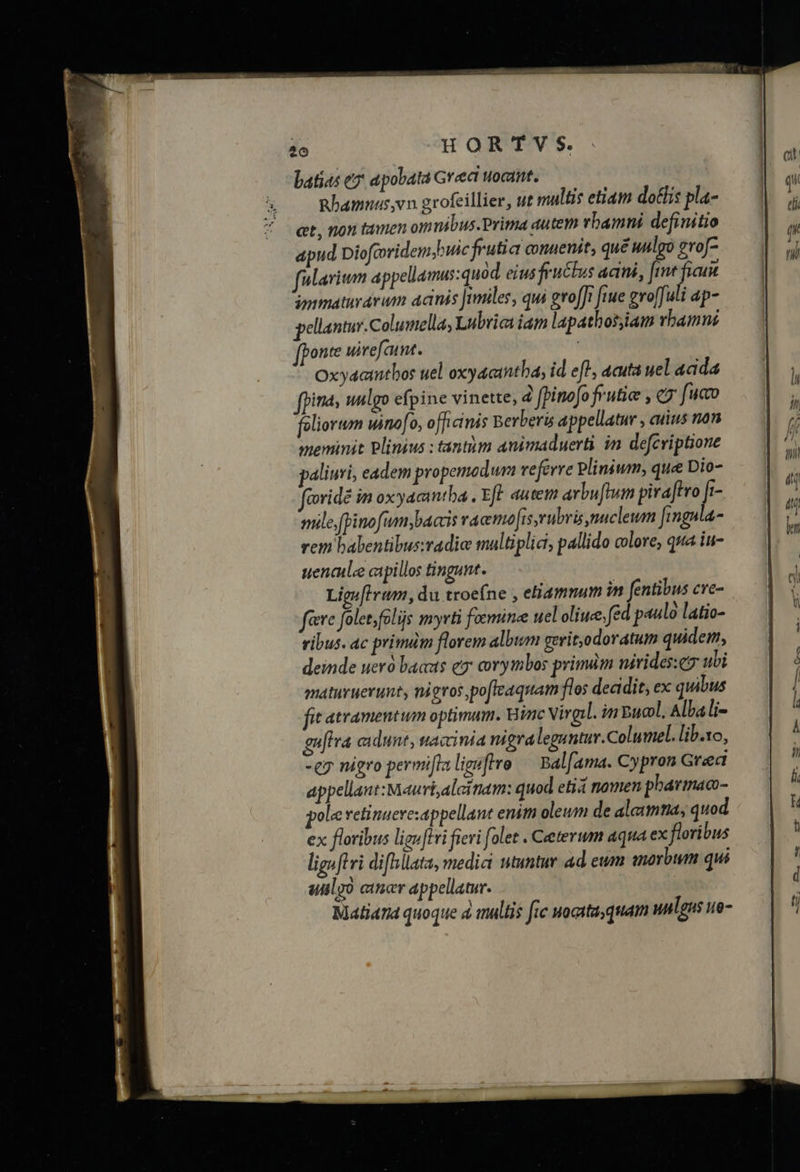 20 HORTVS.
batias & apobata Græci uocant.
Rhamnus, vn grofeillier, ut multis etiam doctis pla-
cet, non tamen omnibus. Prima autem rhamni definitio
apud Dioscoridem, huic frutici conuenit, quẽ uulgo gros-
sularium appellamus: quòd eius fructus acini, sint ficuũ
immaturarum acinis similes, qui grossi siue grossuli ap-
pellantur. Columella, Lubrica iam lapathos, iam rhamni
sponte uirescunt.
Oxyacanthos uel oxyacantha, id est, acuta uel acida
spina, uulgo espine vinette, à spinoso frutice, & succo
foliorum uinoso, officinis Berberis appellatur, cuius non
meminit Plinius: tantùm animaduerti in descriptione
paliuri, eadem propemodum referre Plinium, quæ Dio-
scoridẽ in oxyacantha. Est autem arbustum pirastro si-
mile, spinosum, baccis racemosis, rubris, nucleum singula-
rem habentibus: radice multiplici, pallido colore, qua iu-
uenculæ capillos tingunt.
Ligustrum, du troesne, etiamnum in sentibus cre-
scere solet, folijs myrti fœminæ uel oliuæ, sed paulò latio-
ribus. ac primùm florem album gerit, odoratum quidem,
deinde uerò baccas & corymbos primùm uirides: & ubi
maturuerunt, nigros, posteaquam flos decidit, ex quibus
fit atramentum optimum. Hinc Virgil. in Bucol. Alba li-
gustra cadunt, uaccinia nigra leguntur. Columel. lib. 10,
-& nigro permista ligustro Balsama. Cypron Græci
appellant: Mauri, alcãnam: quod etiã nomen pharmaco-
polæ retinuere: appellant enim oleum de alcanna, quod
ex floribus ligustri fieri solet. Cæterum aqua ex floribus
ligustri distillata, medici utuntur ad eum morbum qui
uulgò cancer appellatur.
Matiana quoque à multis sic uocata, quam uulgus uo-